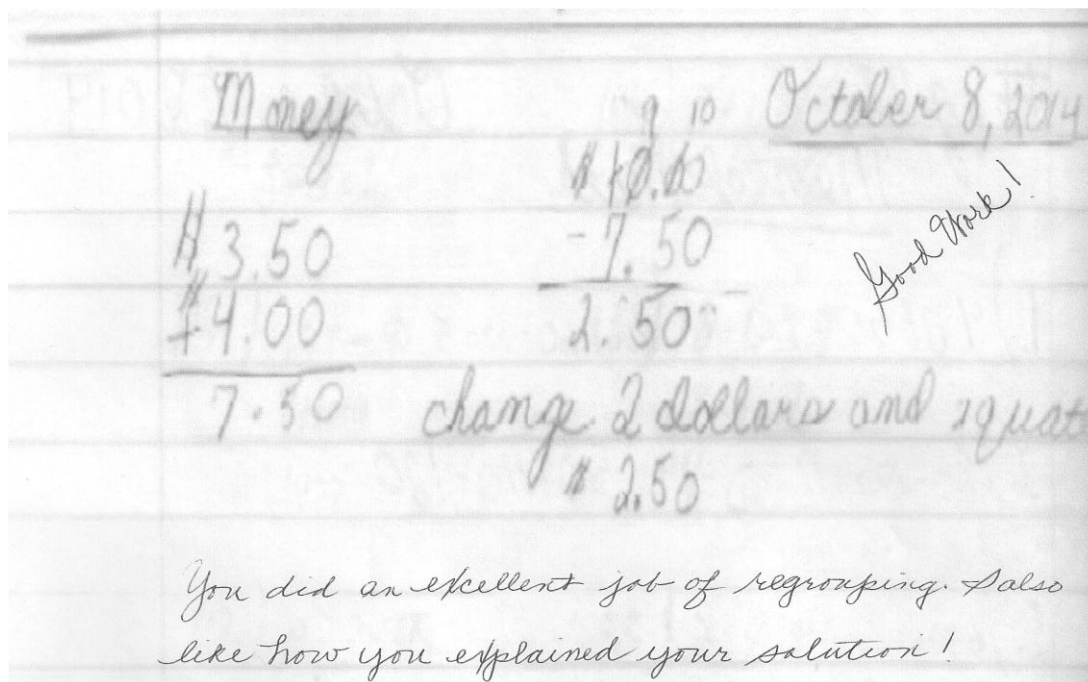 Money
October 8, 2014
9 10
$10.00
$3.50
- 7.50
Good Work!
+4.00
2.50
7.50
change 2 dollars and
$2.50
You did an excellent job of regrouping. I also
like how you explained your solution!